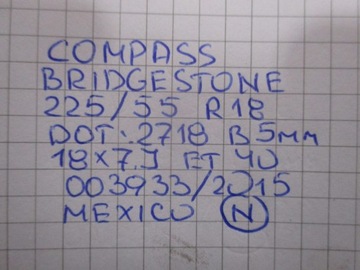 COMPASS
BRIDGESTONE
225/55 R18
DOT·2718 B5mm
18x7.J ET 40
003933/2015
MEXICO N